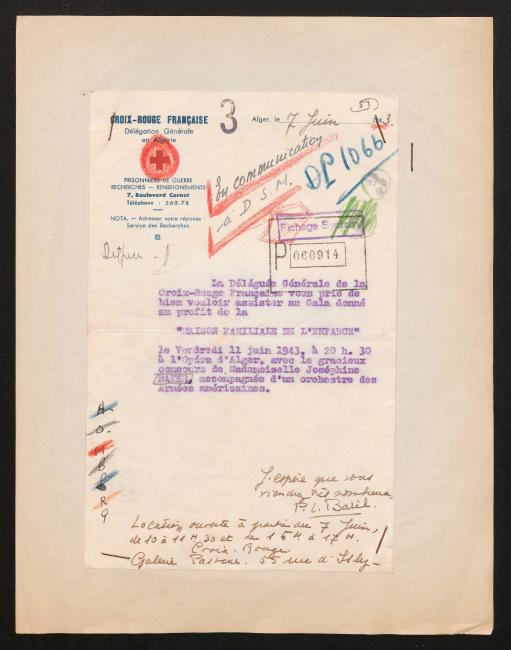 CROIX-ROUGE FRANÇAISE
Délégation Générale
en Algérie
PRISONNIERS DE GUERRE
RECHERCHES — RENSEIGNEMENTS
7, Boulevard Carnot
Téléphone : 360.78
NOTA. — Adresser votre réponse :
Service des Recherches
3
Alger, le 7 Juin 1943.
53
En communication
à D.S.M.
DP 1066
Fichage
P
060914
La Déléguée Générale de la
Croix-Rouge Française vous prie de
bien vouloir assister au Gala donné
au profit de la
"MAISON FAMILIALE DE L'ENFANCE"
le Vendredi 11 juin 1943, à 20 h. 30
à l'Opéra d'Alger, avec le gracieux
concours de Mademoiselle Joséphine
BAKER, accompagnée d'un orchestre des
Armées américaines.
J'espère que vous
viendrez très nombreux
P. L. Baril.
Location ouverte à partir du 7 Juin,
de 10 à 11 H 30 et de 15 H à 17 H.
Croix-Rouge.
Galerie Pasteur. 55 rue d'Isly-